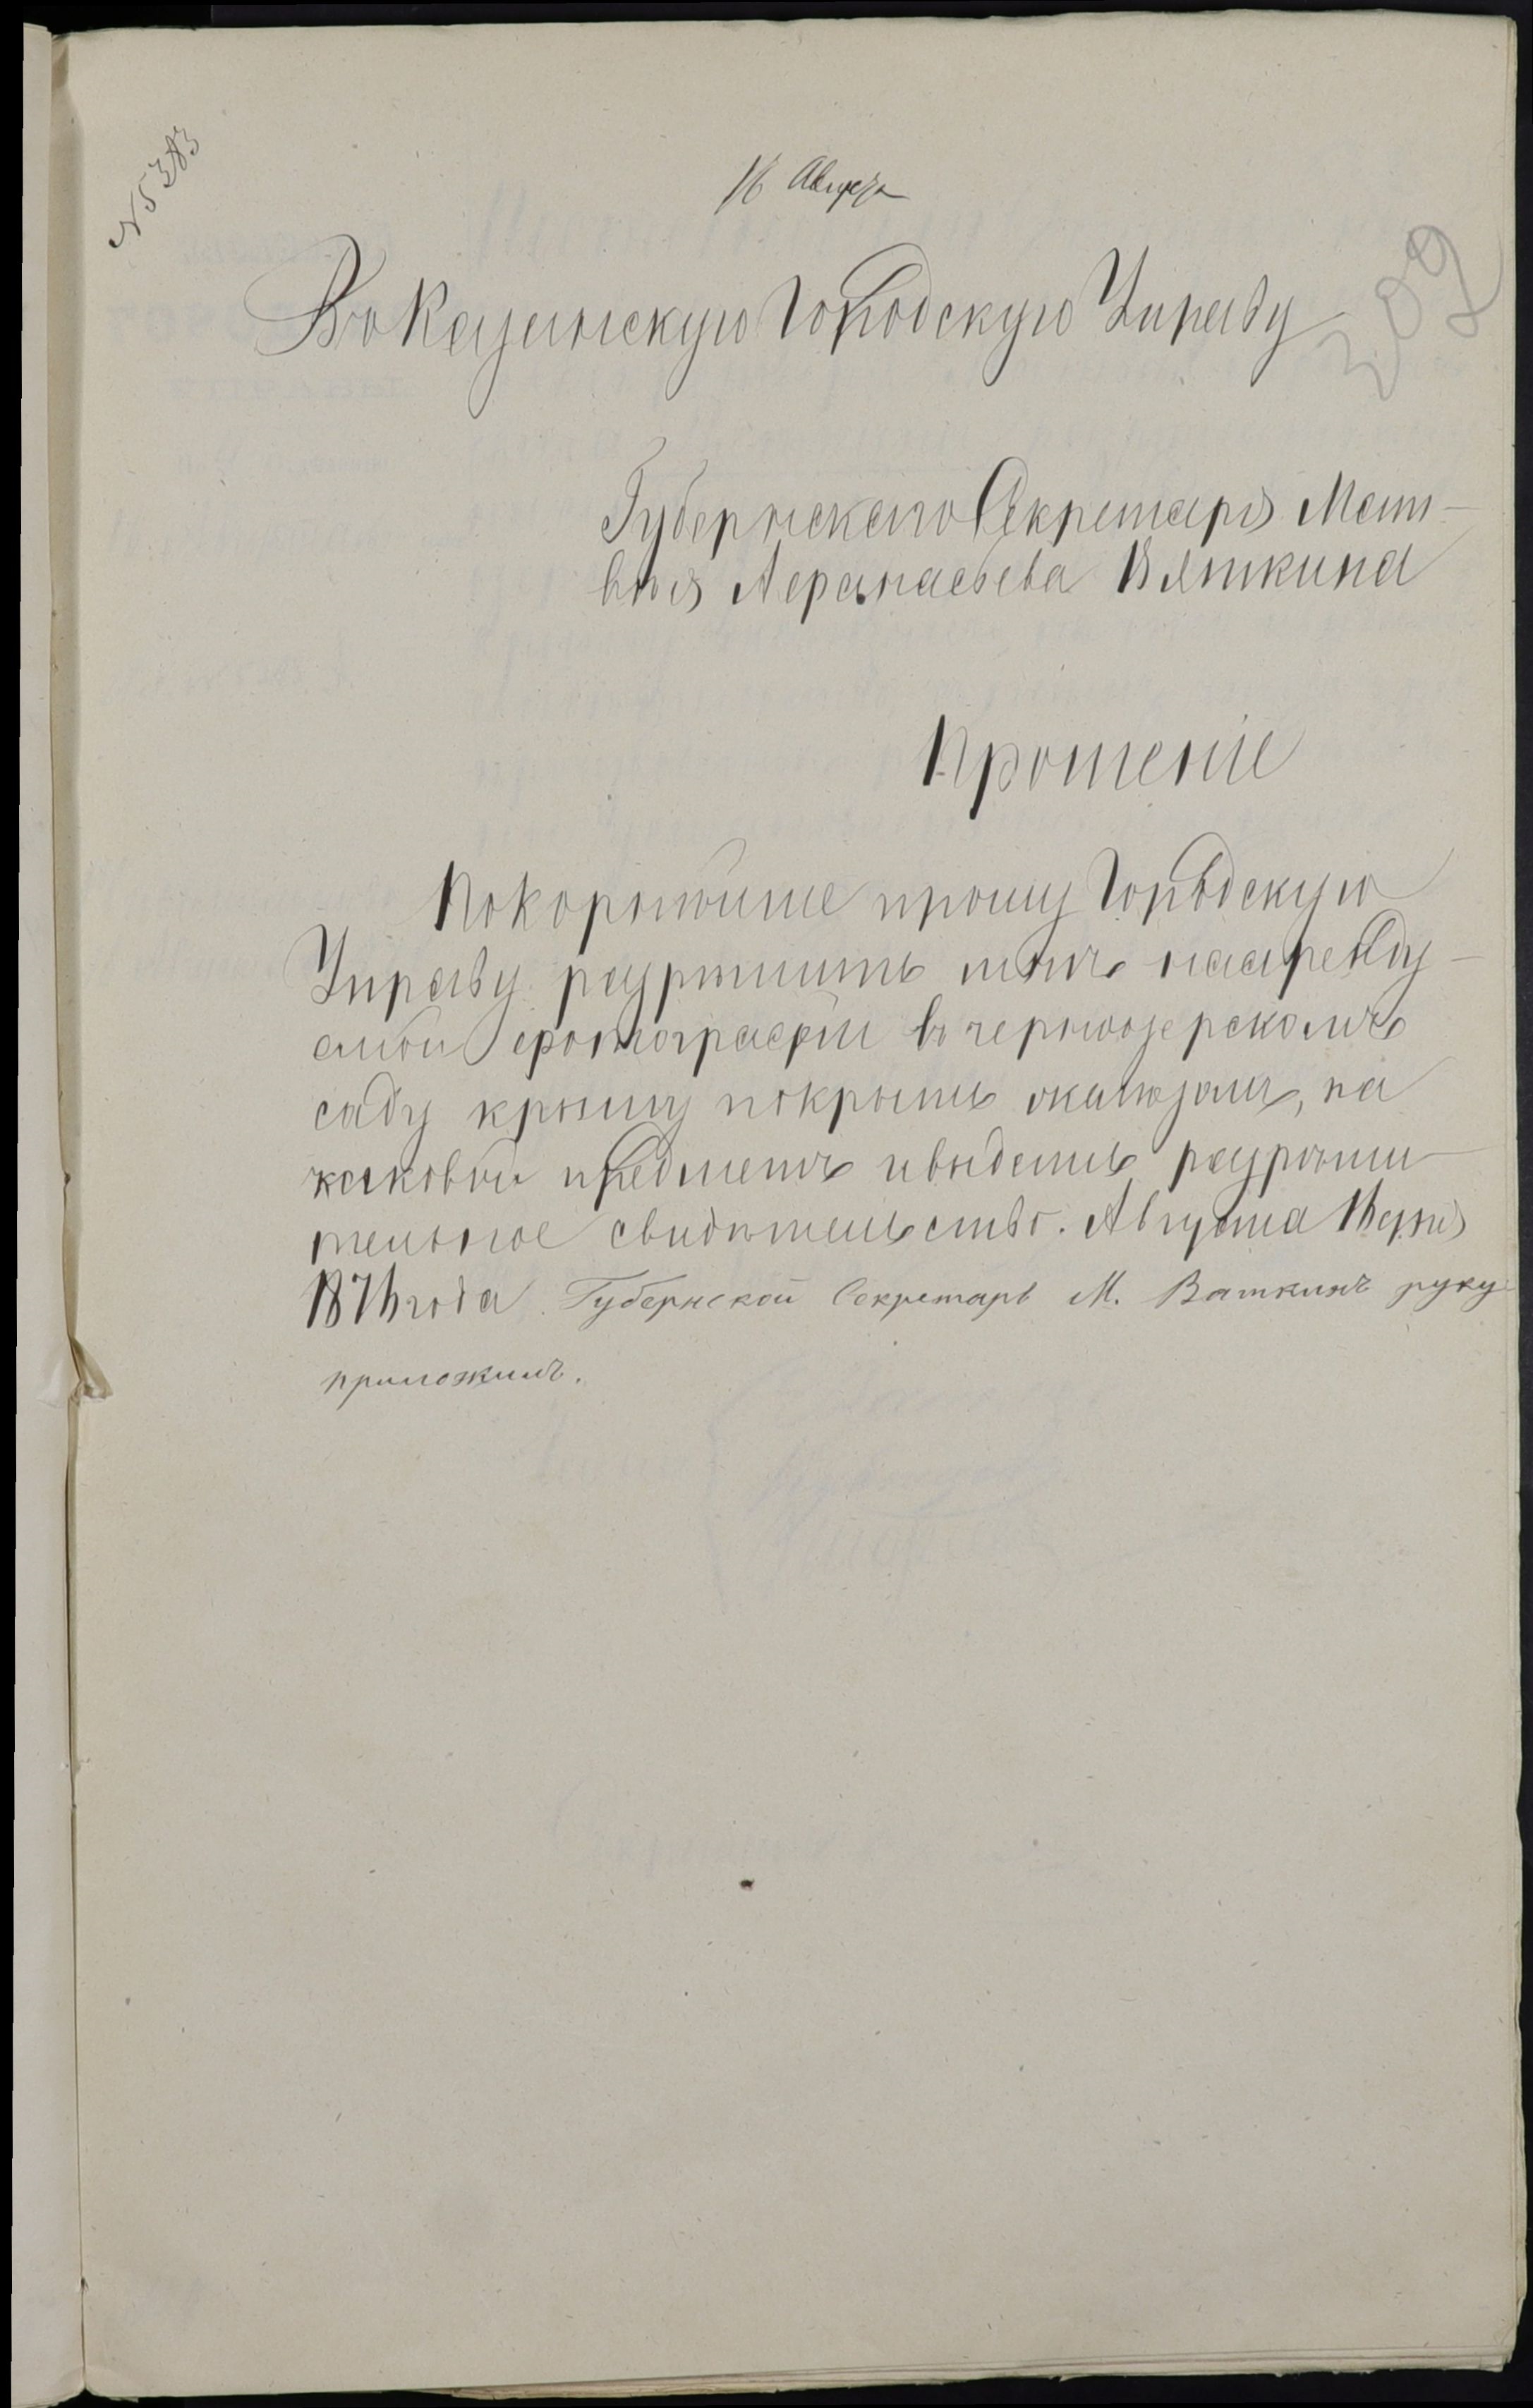 № 5383
16 Августа
309
Въ Казанскую Городскую Управу
Губернскаго Секретаря Мат-
вѣя Афанасьева Вяткина
Прошеніе
Покорнѣйше прошу Городскую
Управу разрѣшить мнѣ на аренду-
емой фотографіи въ черноозерскомъ
саду крышу покрыть желѣзомъ, на
каковой предметъ и выдать разрѣши-
тельное свидѣтельство. Августа дня
1876 года Губернской Секретарь М. Вяткинъ руку
приложилъ.